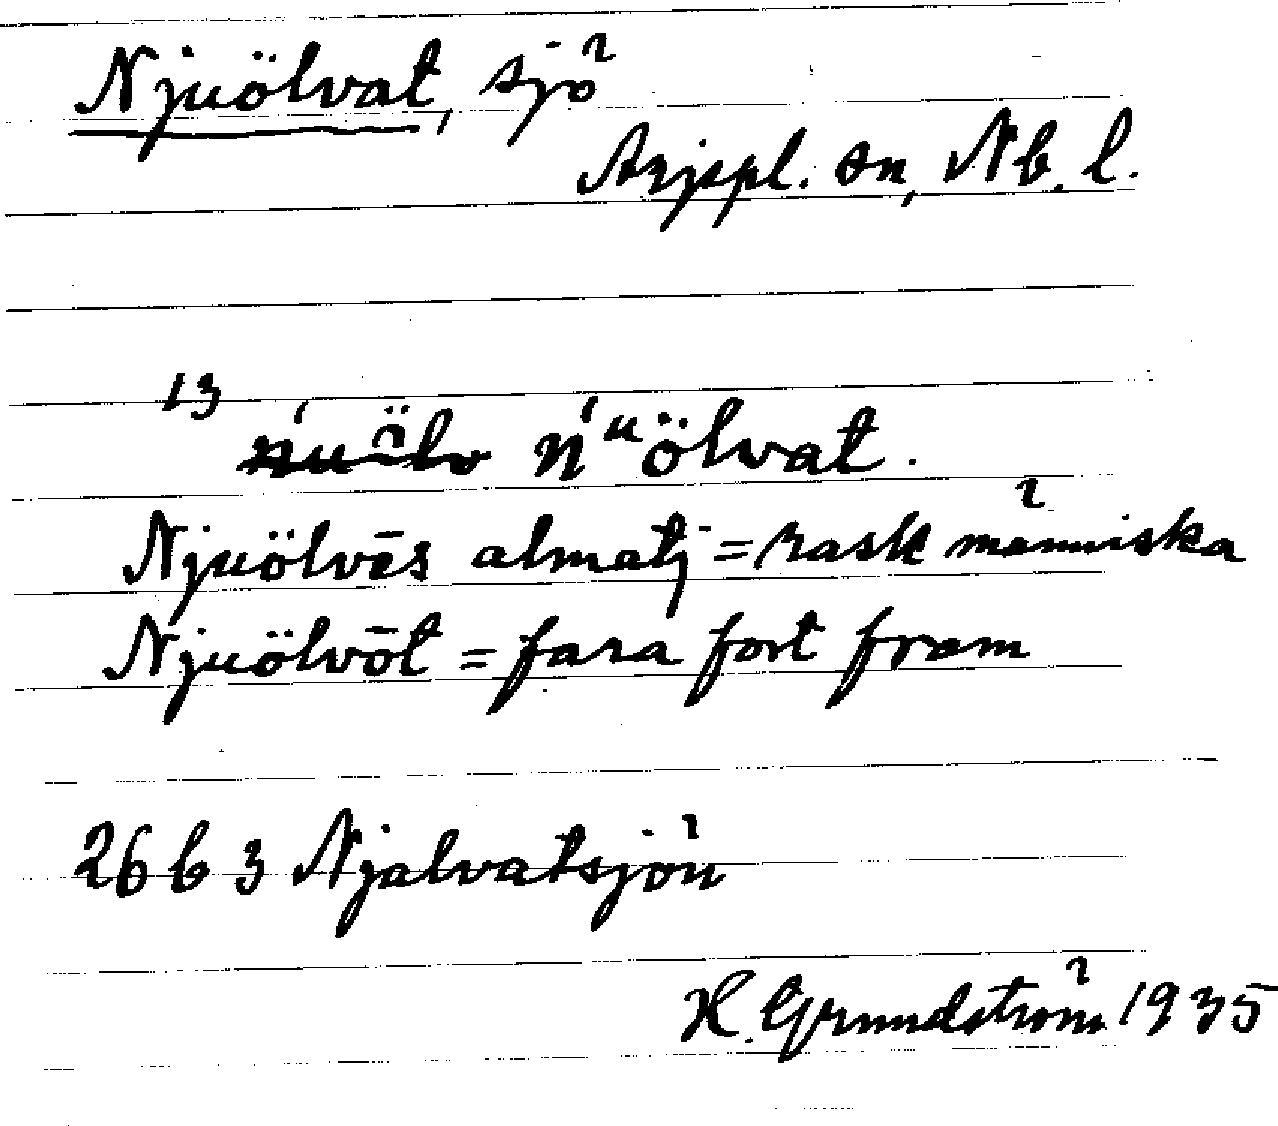 Njuölvat, sjö
Arjepl. sn, Nb. l.
13
ńuölv ńᵘölvat.
Njuölvēs almatj = rask människa
Njuölvōt = fara fort fram
26 b 3 Njalvatsjön
H. Grundström 1935